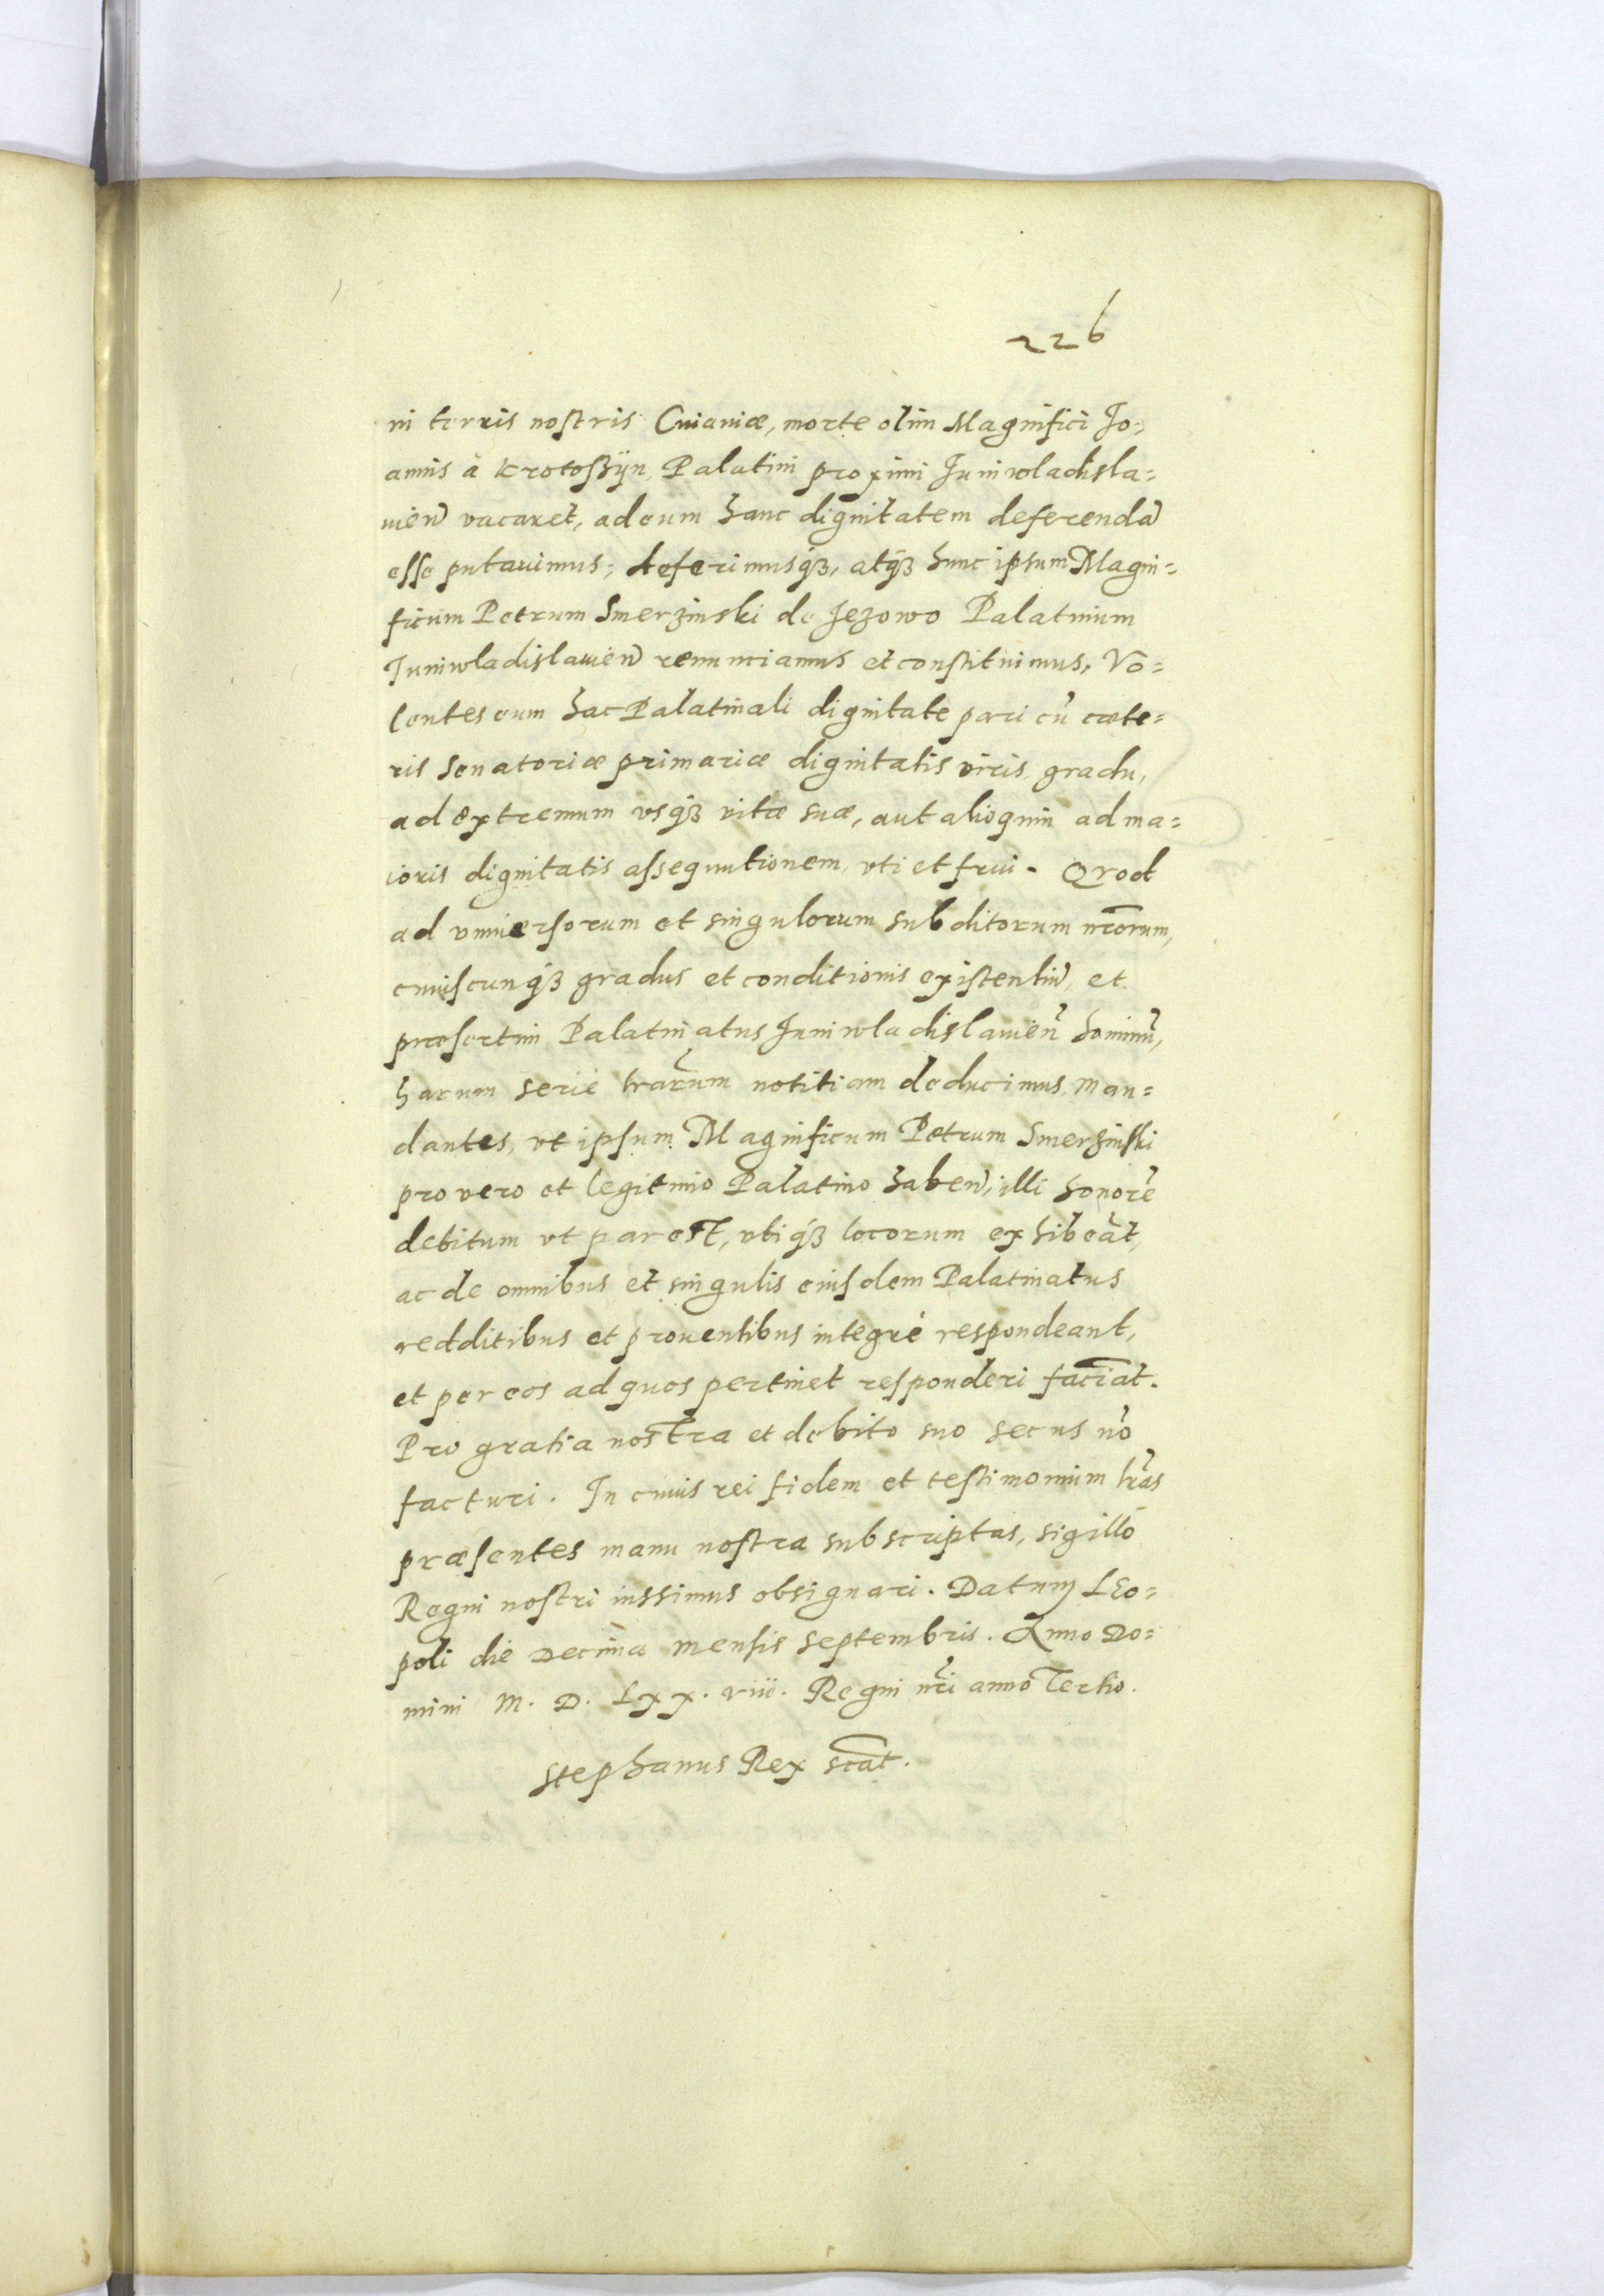 226
in terris nostris Cuiauiæ, morte olim Magnifici Jo=
annis à Krotoßÿn, Palatini proximi Juniwladisla=
uien̄ vacaret, ad eum hanc dignitatem deferendā
esse putauimus; deferimusq́ꝫ, atq́ꝫ hunc ipsum Magni=
ficum Petrum Smerzinski de Jezowo Palatinum
Juniwladislauien̄ renunciamus et constituimus, Vo=
lentes eum hac Palatinali dignitate pari cū cæte=
ris Senatoriæ primariæ dignitatis viris gradu,
ad extremum vsq́ꝫ vitæ suæ, aut alioqnin ad ma=
ioris dignitatis assequutionem, vti et frui. Qvod
ad vniuersorum et singulorum subditorum nr̄orum,
cuiuscunq́ꝫ gradus et conditionis existentiū, et
præsertim Palatinatus Juniwladislauien̄ hominū,
harum serie lr̄arum notitiam deducimus, man=
dantes, vt ipsum Magnificum Petrum Smerzinski
pro vero et legitimo Palatino haben̄, illi honorē
debitum vt par est, vbiq́ꝫ locorum exhibeāt,
ac de omnibus et singulis eiusdem Palatinatus
redditibus et prouentibus integrè respondeant,
et per eos ad quos pertinet responderi faciāt.
Pro gratia nostra et debito suo secus nō
facturi. In cuius rei fidem et testimonium lr̄as
præsentes manu nostra subscriptas, sigillo
Regni nostri iussimus obsignari. Datum Leo=
poli die Decima mensis Septembris. Anno Do=
mini M. D. Lxx. viii. Regni nr̄i anno Tertio.
Stephanus Rex sc̄at.